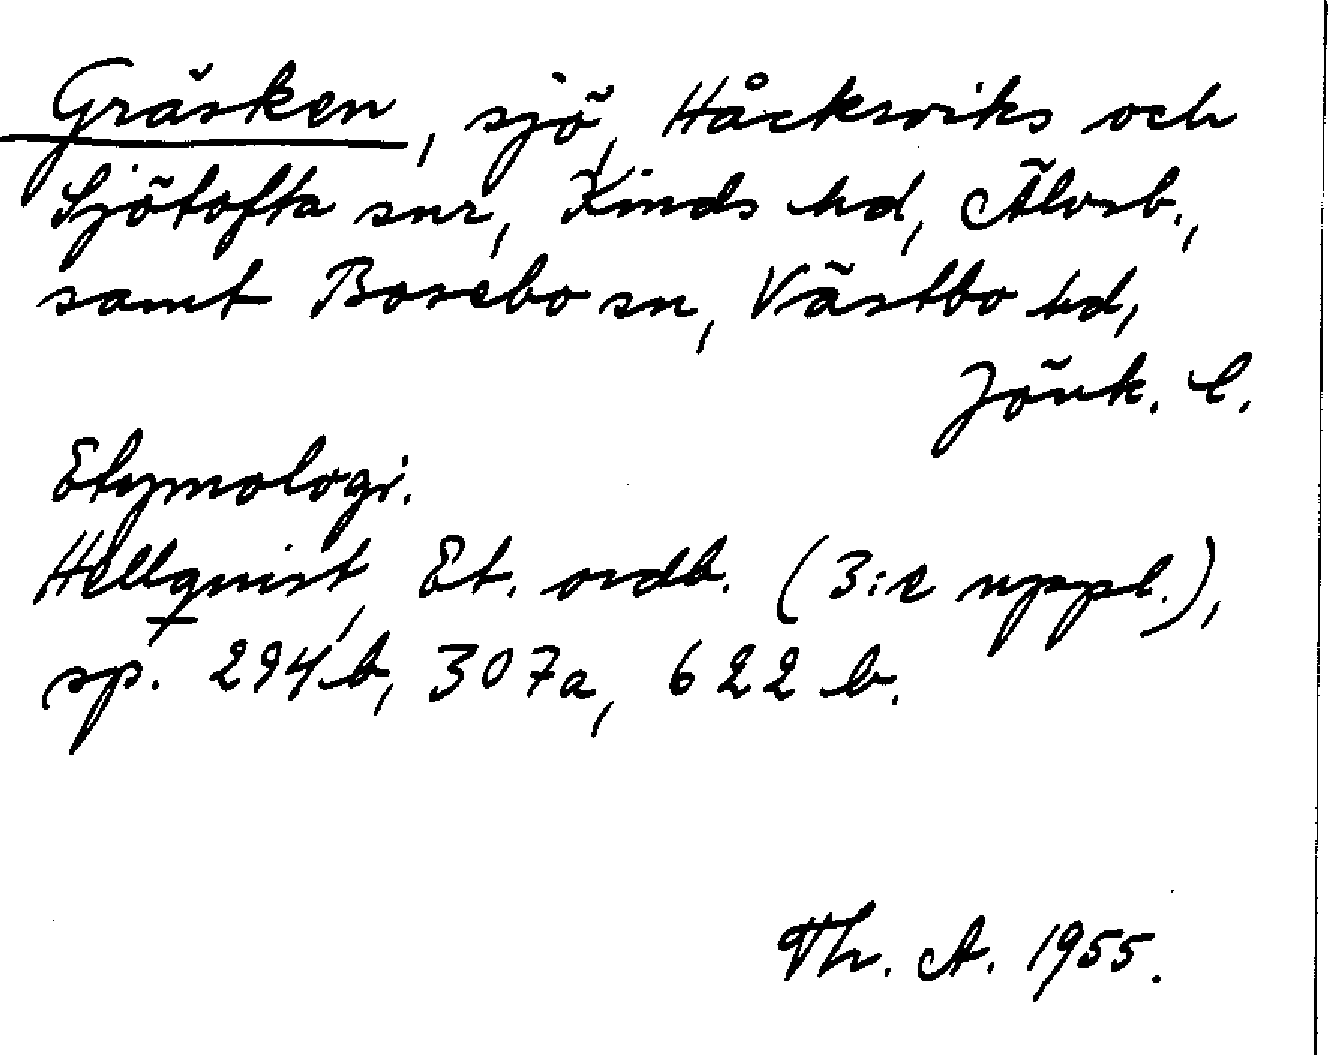 Gräsken, sjö, Håcksviks och
Sjötofta snr, Kinds hd, Älvsb.,
samt Bosebo sn, Västbo hd,
Jönk. l.
Etymologi.
Hellquist, Et. ordb. (3:e uppl.),
sp. 294b, 307a, 622b.
Th. A. 1955.